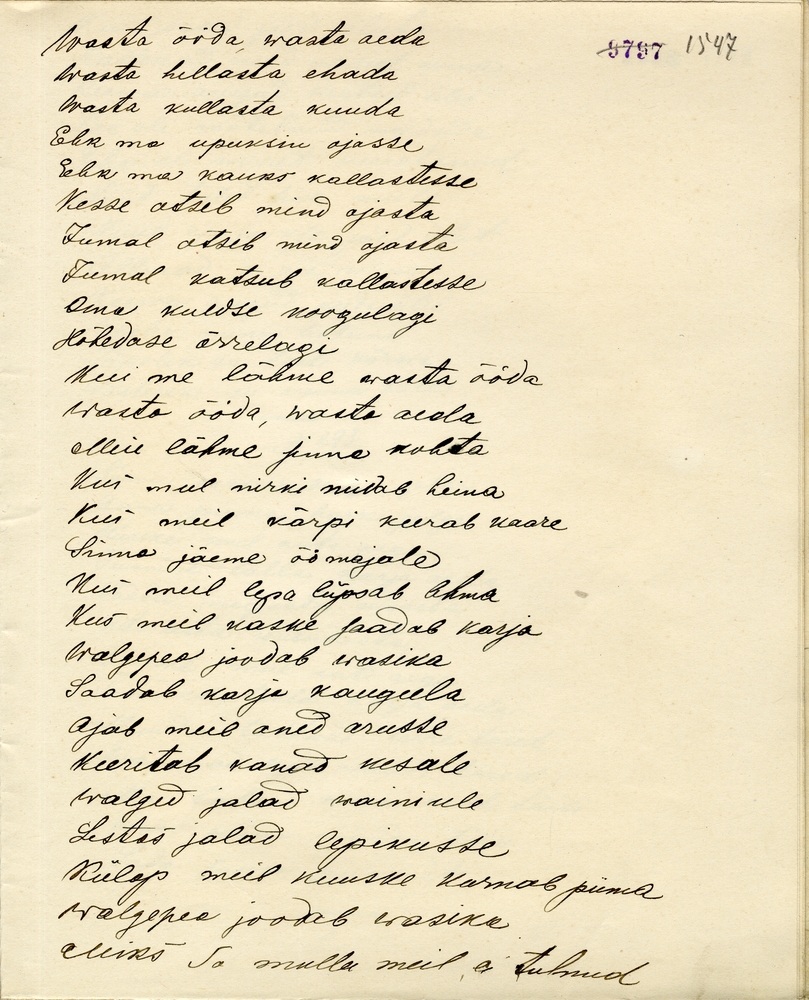 3797 1547
Wasta ööda, wasta aeda
Wasta hellasta ehada
Wasta kullasta kuuda
Ehk ma upuksin ojasse
Ehk ma kauks kallastesse
Kesse otsib mind ojasta
Jumal otsib mind ojasta
Jumal katsub kallastesse
Oma kuldse koogulagi
Hõbedase õrrelagi
Kui me lähme wasta ööda
Wasta ööda, wasta aeda
Meie lähme sinna kohta
Kus meil nirki niidab heina
Kus meil kärpi keerab kaare
Sinna jäeme öömajale
Kus meil lepa lüpsab lehma
Kus meil kaske saadab karja
Walgepea joodab wasika
Saadab karja kaugeela
Ajab meil aned arusse
Keeritab kanad kesale
Walged jalad wainiule
Lestas jalad lepikusse
Külap meil kuuske kurnab piima
Walgepea joodab wasika
Miks Sa mulla meil ei tulnud